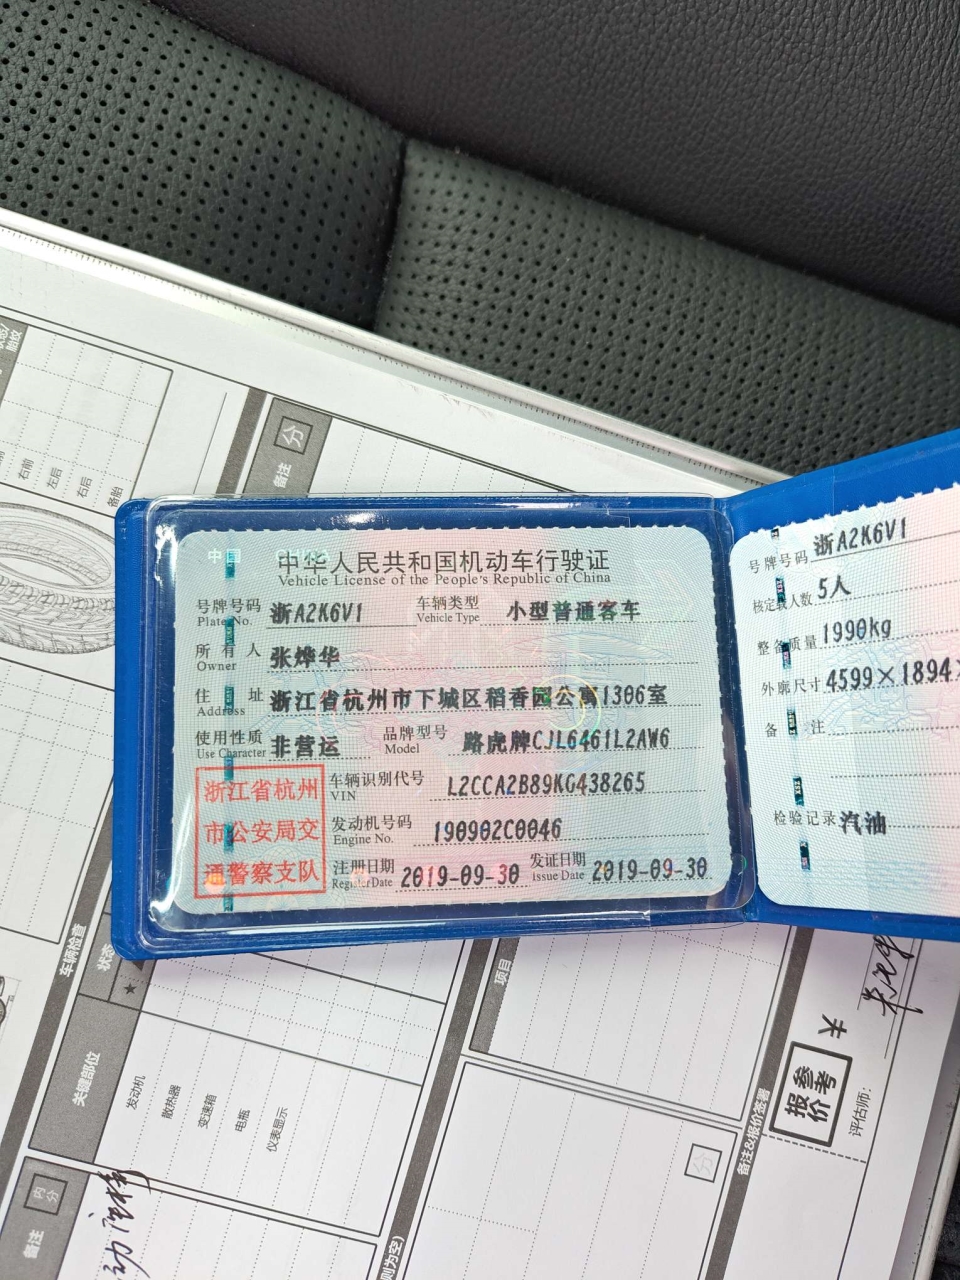 中国 CHINA
中华人民共和国机动车行驶证
Vehicle License of the People's Republic of China
号牌号码 浙A2K6V1 车辆类型 小型普通客车
Plate No. Vehicle Type
所有人 张烨华
Owner
住址 浙江省杭州市下城区稻香园公寓1306室
Address
使用性质 非营运 品牌型号 路虎牌CJL6461L2AW6
Use Character Model
浙江省杭州
市公安局交
通警察支队
车辆识别代号 L2CCA2B89KG438265
VIN
发动机号码 190902C0046
Engine No.
注册日期 2019-09-30 发证日期 2019-09-30
Register Date Issue Date
号牌号码 浙A2K6V1
核定载人数 5人
整备质量 1990kg
外廓尺寸 4599×1894×
备注
检验记录 汽油
右前
左后
右后
备胎
备注
分
车辆检查
状态
★
关键部位
发动机
散热器
变速箱
电瓶
仪表显示
备注
内分
项目
分
备注&报价签署
报价参考
评估师:
则为空)